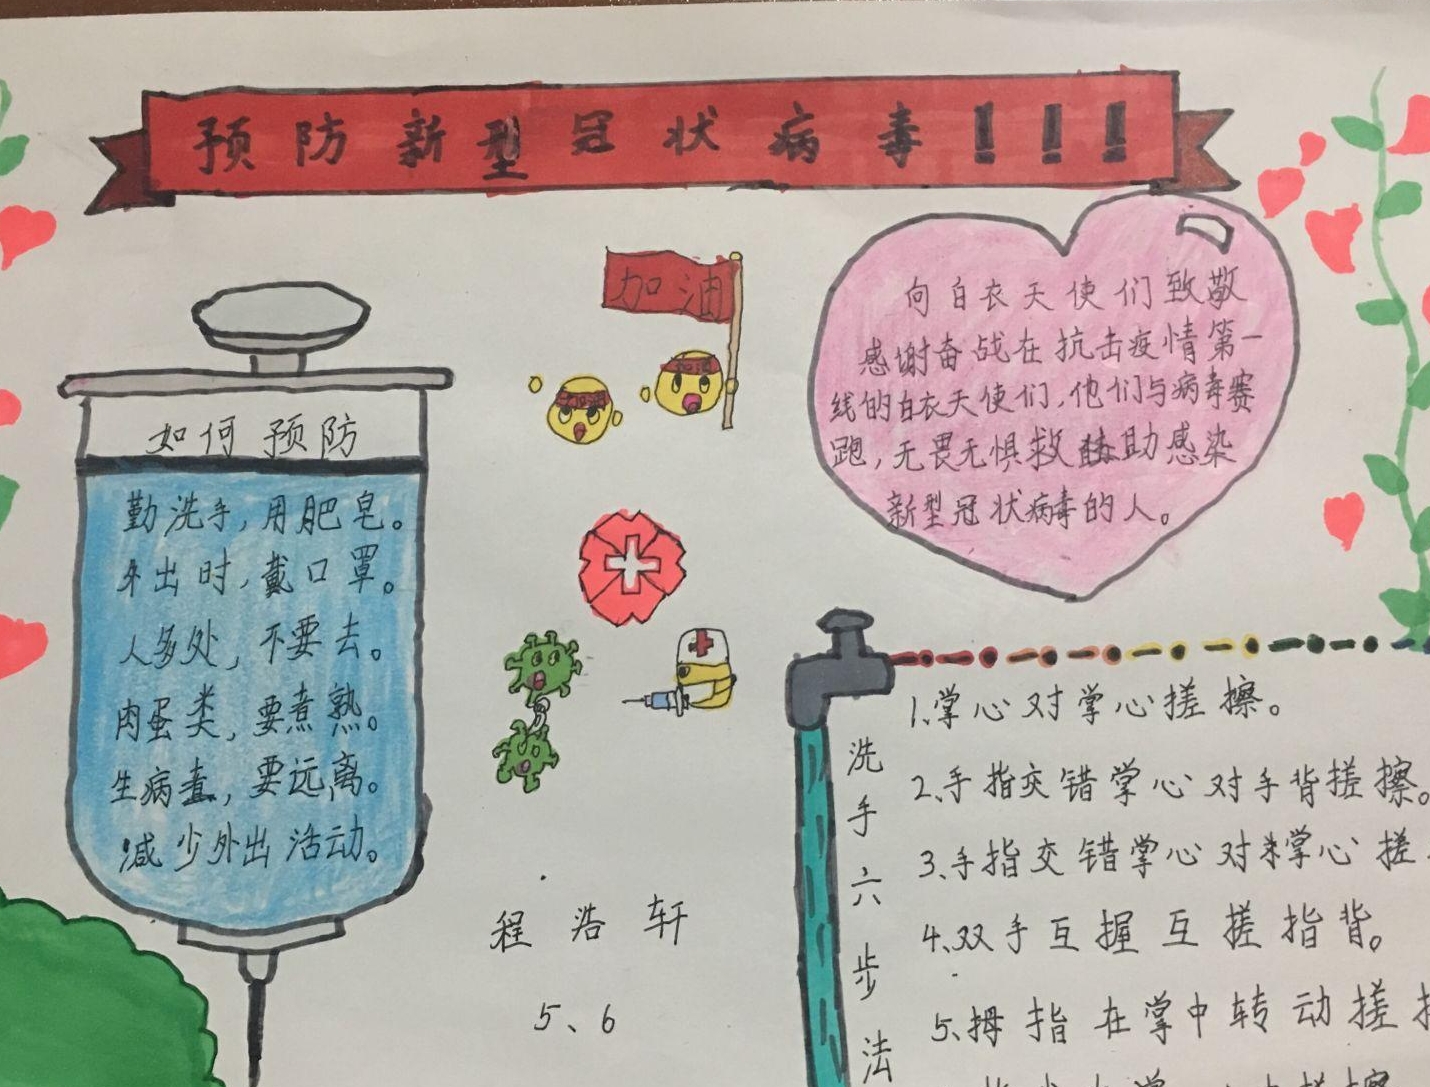 预防新型冠状病毒!!!
加油
加油
加油
向白衣天使们致敬
感谢奋战在抗击疫情第一
线的白衣天使们,他们与病毒赛
跑,无畏无惧救助感染
新型冠状病毒的人。
如何预防
勤洗手,用肥皂。
外出时,戴口罩。
人多处,不要去。
肉蛋类,要煮熟。
生病毒,要远离。
减少外出活动。
程浩轩
5、6
洗手六步法
1、掌心对掌心搓擦。
2、手指交错掌心对手背搓擦。
3、手指交错掌心对掌心搓
4、双手互握互搓指背。
5、拇指在掌中转动搓